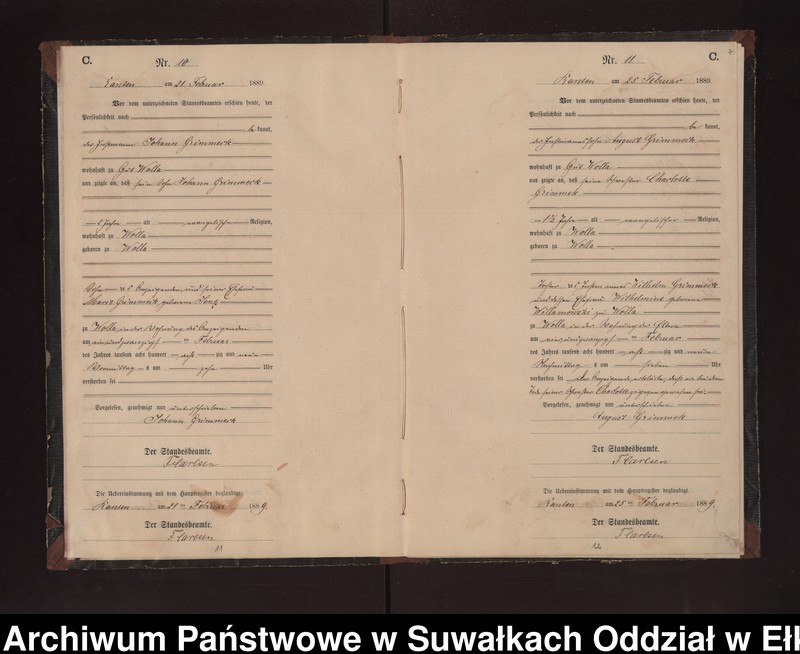 C.
Nr. 10
am 21 Februar 1889.
Vor dem unterzeichneten Standesbeamten erschien heute, der
Persönlichkeit nach
be kannt,
Johann Grimmeck
wohnhaft zu Gut Wolla
und zeigte an, daß sein Sohn Johann Grimmeck
2 Jahre alt evangelischer Religion,
wohnhaft zu Wolla
geboren zu Wolla
Sohn des Anzeigenden und seiner Ehefrau
Marie Grimmeck geborene
zu Wolla in der Wohnung des Anzeigenden
am einundzwanzigsten Februar
des Jahres tausend acht hundert acht zig und neun
Vormittag s um zehn Uhr
verstorben sei
Vorgelesen, genehmigt und unterschrieben
Johann Grimmeck
Der Standesbeamte.
Die Uebereinstimmung mit dem Hauptregister beglaubigt.
am 21 ten Februar 1889.
Der Standesbeamte.
11
C.
Nr. 11
am 25 Februar 1889.
Vor dem unterzeichneten Standesbeamten erschien heute, der
Persönlichkeit nach
be kannt,
August Grimmeck
wohnhaft zu Gut Wolla
und zeigte an, daß seine Schwester Charlotte
Grimmek
1½ Jahre alt evangelischer Religion,
wohnhaft zu Wolla
geboren zu Wolla
Tochter des Wilhelm Grimmeck
und dessen Ehefrau Wilhelmine geborene
Willamowski zu Wolla
zu Wolla in der Wohnung der Eltern
am Februar
des Jahres tausend acht hundert acht zig und neun
Nachmittag s um sieben Uhr
verstorben sei Der Anzeigende erklärte, daß er bei dem
Tode seiner Schwester Charlotte zugegen gewesen sei.
Vorgelesen, genehmigt und unterschrieben
August Grimmek
Der Standesbeamte.
Die Uebereinstimmung mit dem Hauptregister beglaubigt.
am 25 ten Februar 1889.
Der Standesbeamte.
12
Archiwum Państwowe w Suwałkach Oddział w Ełk